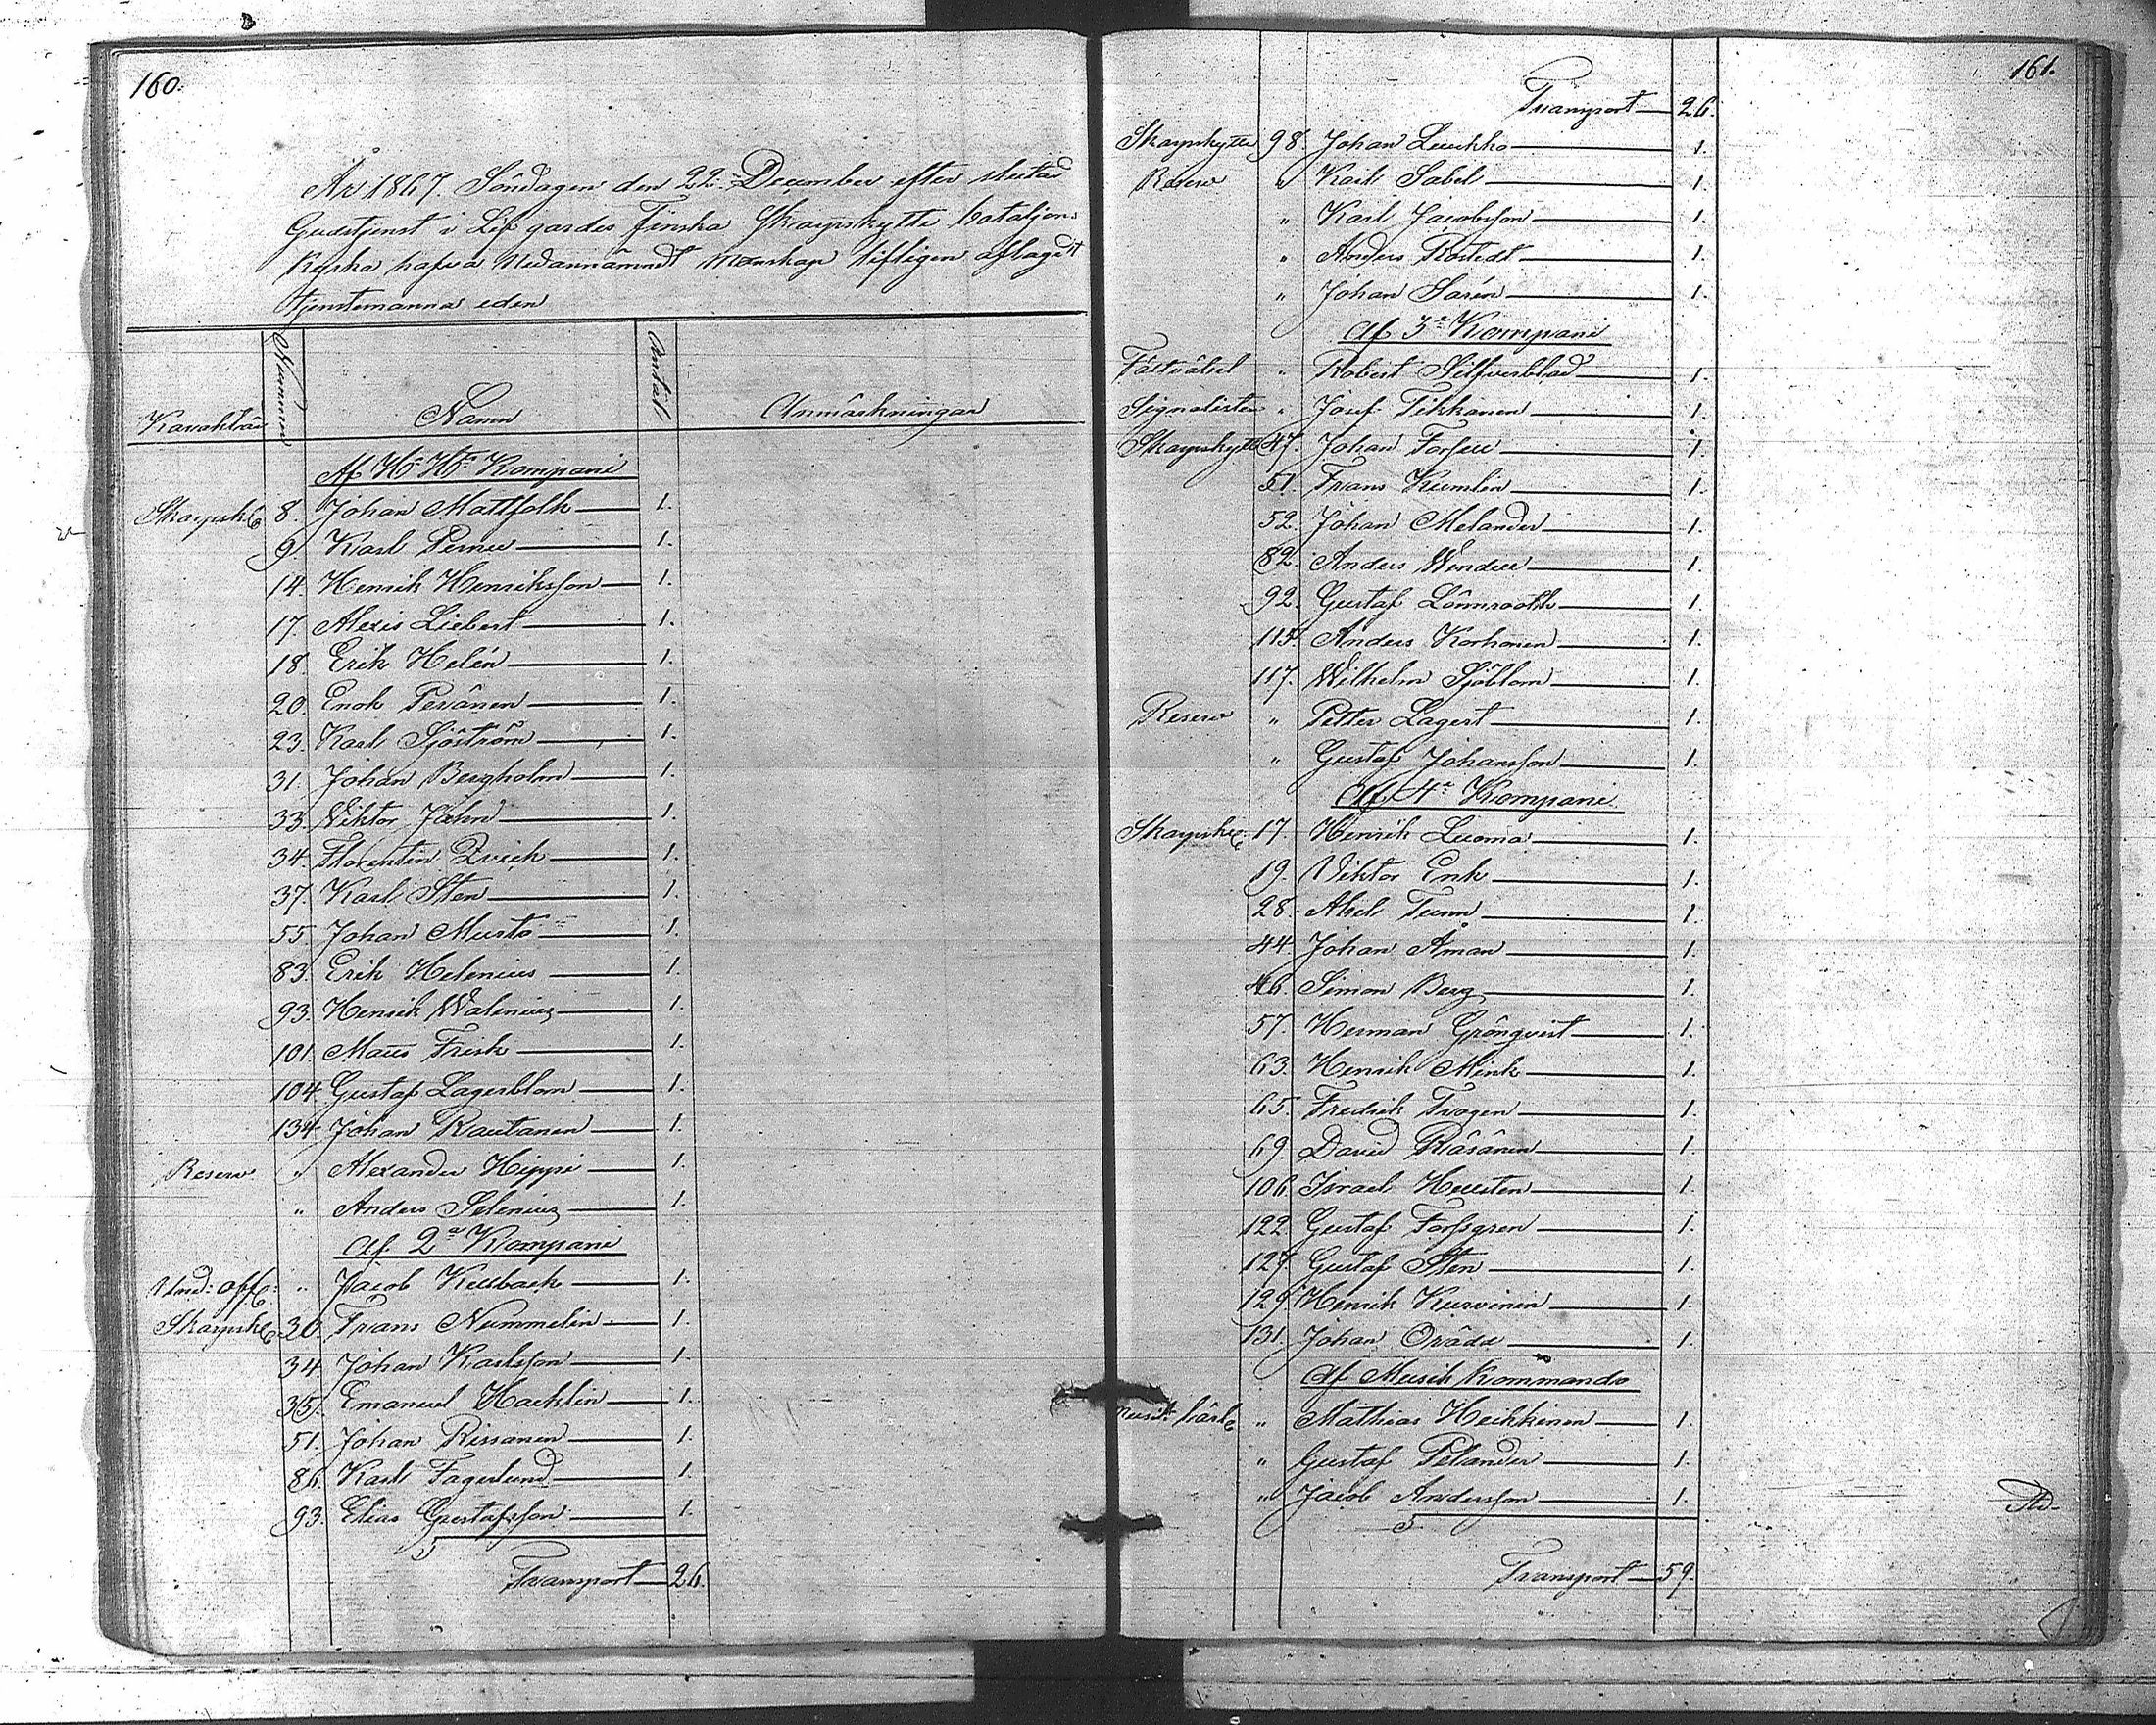 160.
År 1867. Söndagen den 22 December efter slutad
Gudstjenst i Lif gardes Finska Skarpskytte bataljons
Kyrka hafva Nedannämndt Manskap lifligen aflagdt
tjenstemanna eden
Karakter Nummer Namn Antal Anmärkningar
Af Hs Hts Kompani
Skarpsk 8. Johan Mattfolk 1.
9. Karl Pernu 1.
14. Henrik Henriksson 1.
17. Alexis Liebert 1.
18. Erik Helén 1.
20. Enok Peränen 1.
23. Karl Sjöström 1.
31. Johan Bergholm 1.
33. Viktor Jahn 1.
34. Florentin 1.
37. Karl Sten 1.
55. Johan Musto 1.
83. Erik Helenius 1.
93. Henrik Walenius 1.
101. Mats Frisk 1.
104 Gustaf Lagerblom 1.
134 Johan Rautanen 1.
Reserv " Alexander Hippi 1.
" Anders Selenius 1.
Af 2a Kompani
Und: off: " Jacob Keisback 1.
Skarpsk 30. Frans Nummelin 1.
34. Johan Karlsson 1.
35. Emanuel Hacklin 1.
51. Johan Rissanen 1.
86. Karl Fagerlund 1.
93. Elias Gustafsson 1.
Transport 26.
161.
Transport 26.
Skarpskytte 98. Johan Luukko 1.
Reserv " Karl Sabel 1.
" Karl Jacobsson 1.
" Anders Rostedt 1.
" Johan Sarén 1.
Af 3e Kompani
Fältväbel " Robert Silfverblad 1.
Signalisten " Josef Tikkanen 1.
Skarpskytte 47. Johan Forseu 1.
51. Frans Kumlin 1.
52. Johan Melander 1.
82. Anders 1.
92. Gustaf Lönnrooth 1.
115. Anders Korhonen 1.
117. Wilhelm Sjöblom 1.
Reserv " Petter Lagert 1.
" Gustaf Johansson 1.
Af 4e Kompani
Skarpsk 17. Henrik Luoma 1.
19. Viktor Enk 1.
28. Abel Tunn 1.
44. Johan Åman 1.
46. Simon Berg 1.
57. Herman Grönqvist 1.
63. Henrik Mink 1.
65. Fredrik Trogen 1.
69. David Räsänen 1.
106. Israel Hursten 1.
122. Gustaf Forssgren 1.
127. Gustaf Sten 1.
129. Henrik Kurvinen 1.
131. Johan Orädd 1.
Af Musik Kommando
Musik karl " Mathias Heikkinen 1.
" Gustaf Pelander 1.
" Jacob Andersson 1.
Transport 59.